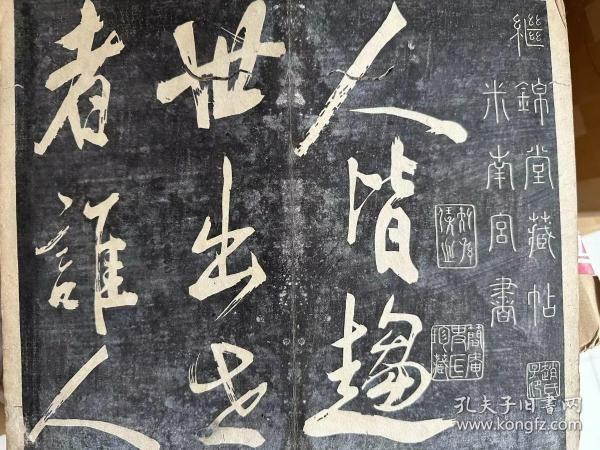 繼錦堂藏帖
米南宮書
人皆趨
世出世
者誰人
孔夫子旧书网
www.kongfz.com